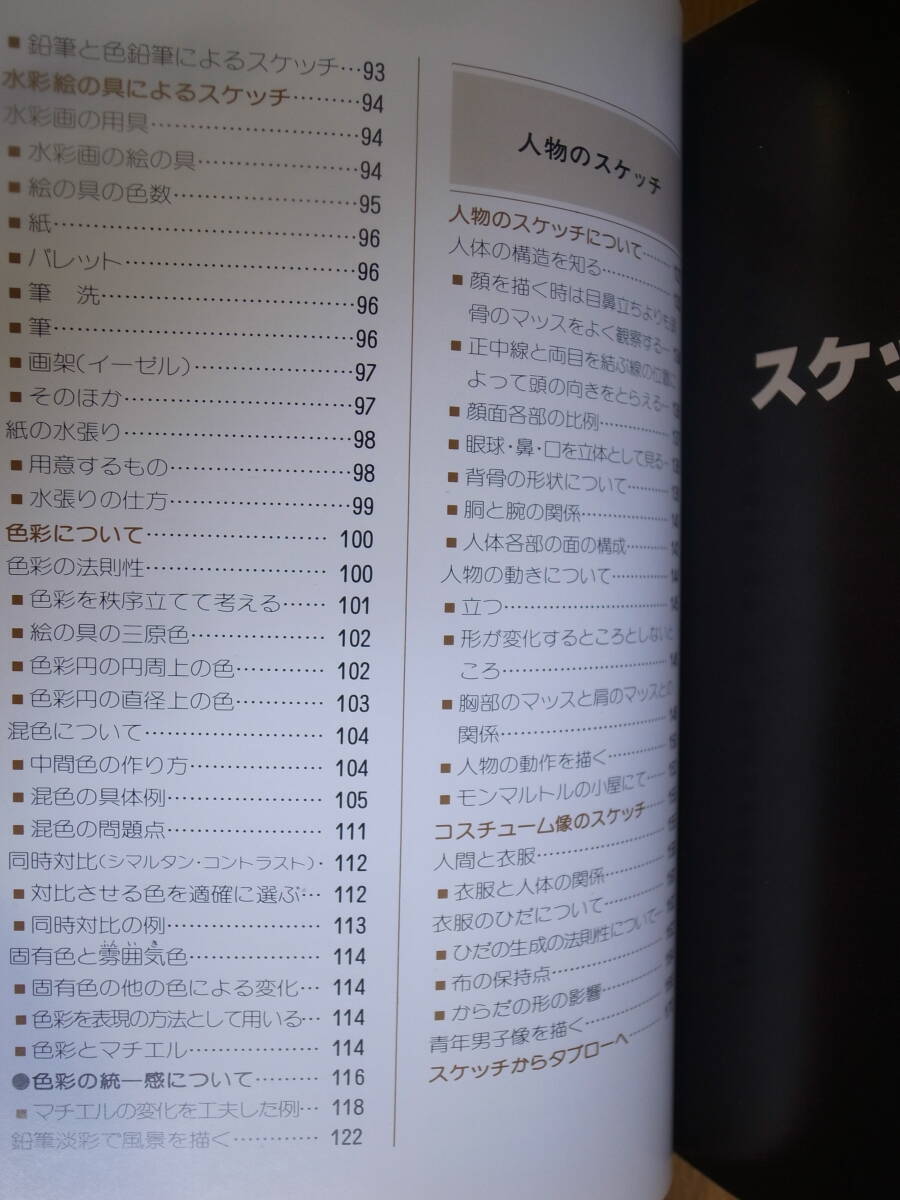 ■鉛筆と色鉛筆によるスケッチ…93
水彩絵の具によるスケッチ………94
水彩画の用具……………………94
■水彩画の絵の具………………94
■絵の具の色数…………………95
■紙………………………………96
■パレット………………………96
■筆　洗…………………………96
■筆………………………………96
■画架(イーゼル)………………97
■そのほか………………………97
紙の水張り………………………98
■用意するもの…………………98
■水張りの仕方…………………99
色彩について…………………100
色彩の法則性…………………100
■色彩を秩序立てて考える……101
■絵の具の三原色………………102
■色彩円の円周上の色…………102
■色彩円の直径上の色…………103
混色について…………………104
■中間色の作り方………………104
■混色の具体例…………………105
■混色の問題点…………………111
同時対比(シマルタン・コントラスト)・112
■対比させる色を適確に選ぶ…112
■同時対比の例…………………113
固有色と雰囲気色………………114
■固有色の他の色による変化…114
■色彩を表現の方法として用いる…114
■色彩とマチエル………………114
●色彩の統一感について………116
■マチエルの変化を工夫した例…118
鉛筆淡彩で風景を描く…………122
人物のスケッチ
人物のスケッチについて………
人体の構造を知る………………
■顔を描く時は目鼻立ちよりも
骨のマッスをよく観察する
■正中線と両目を結ぶ線の位置に
よって頭の向きをとらえる
■顔面各部の比例………………
■眼球・鼻・口を立体として見る
■背骨の形状について…………
■胴と腕の関係…………………
■人体各部の面の構成…………
人物の動きについて……………
■立つ……………………………
■形が変化するところとしないと
ころ………………………………
■胸部のマッスと肩のマッスとの
関係………………………………
■人物の動作を描く……………
■モンマルトルの小屋にて……
コスチューム像のスケッチ……
人間と衣服………………………
■衣服と人体の関係……………
衣服のひだについて……………
■ひだの生成の法則性について
■布の保持点……………………
■からだの形の影響……………
青年男子像を描く………………
スケッチからタブローへ………
スケッ